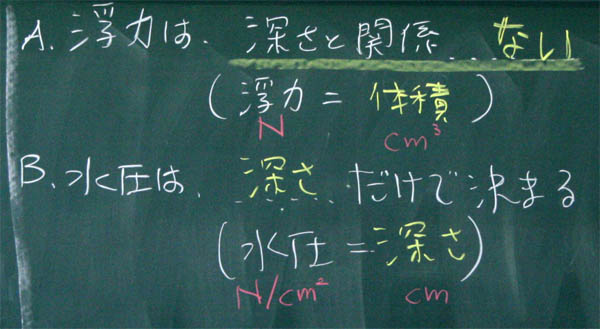 A. 浮力は、深さと関係…ない
(浮力 = 体積)
N cm³
B. 水圧は、深さ……だけで決まる
(水圧 = 深さ)
N/cm² cm